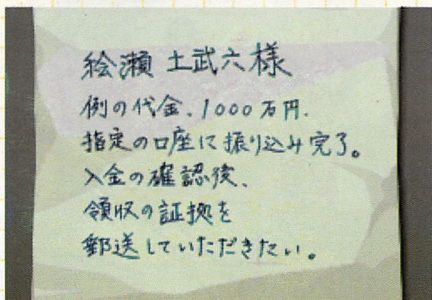 絵瀬 土武六様
例の代金、1000万円、
指定の口座に振り込み完了。
入金の確認後、
領収の証拠を
郵送していただきたい。